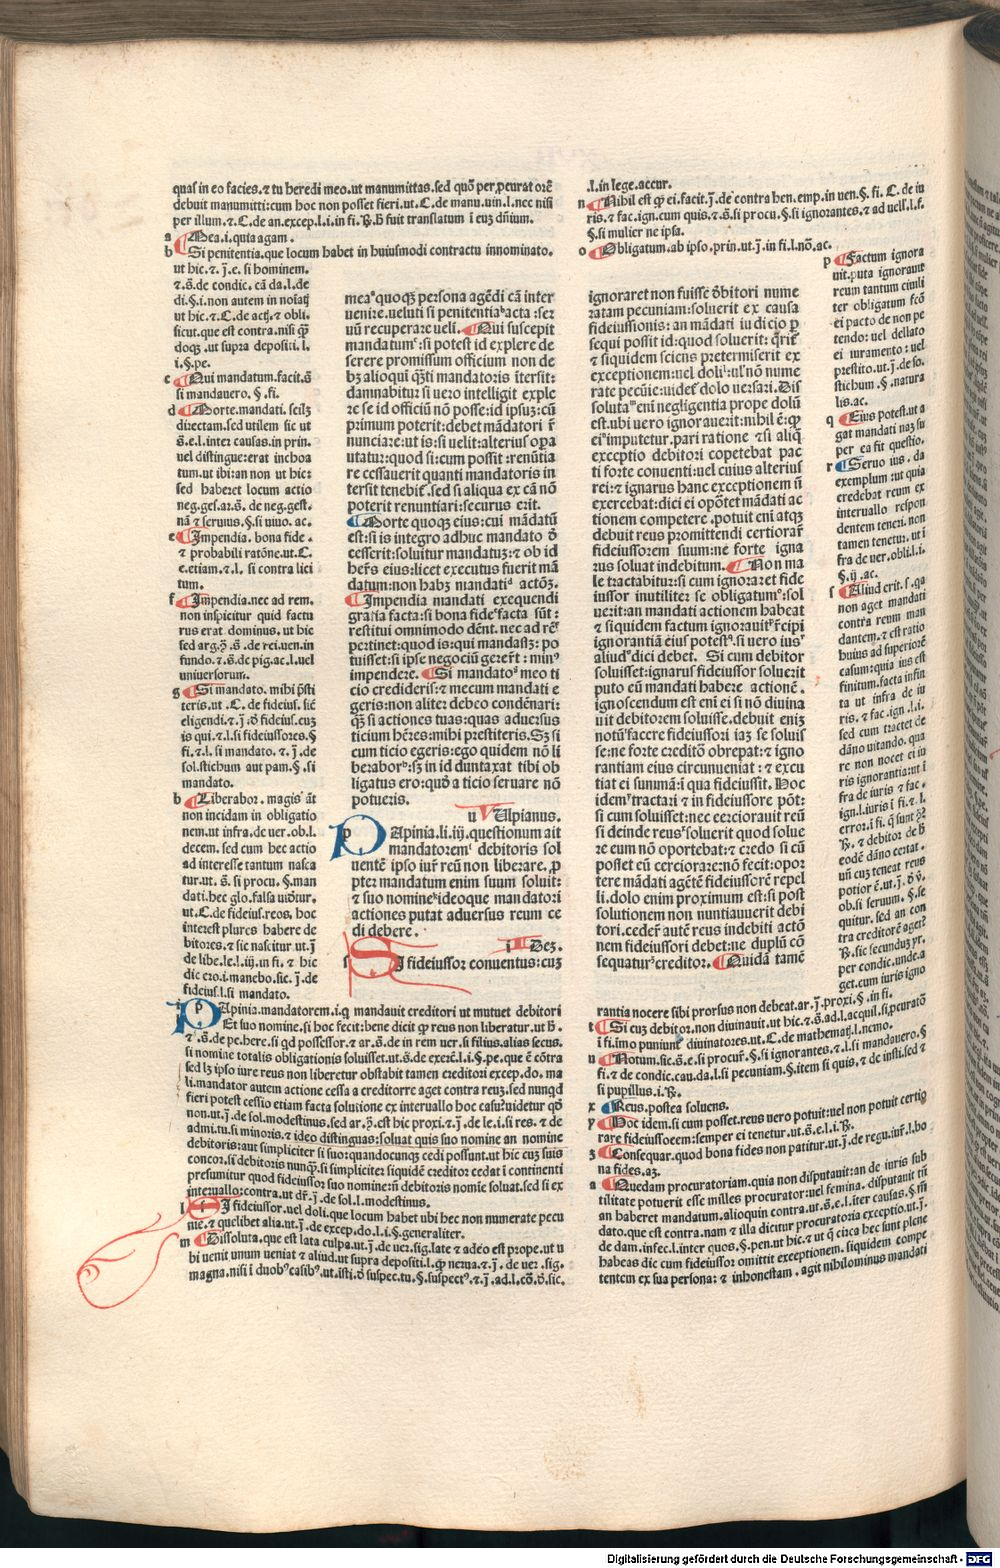 quas in eo facies.⁊ tu heredi meo.ut manumittas.sed quō per,pcuratorē
debuit manumitti:cum hoc non posset fieri.ut.C.de manu.uin.l.nec nisi
per illum.⁊.C.de an.excep.l.i.in fi. fuit translatum i euz dn̄ium.
a Mea.i.quia agam.
b Si penitentia.que locum habet in huiusmodi contractu innominato.
ut hic.⁊.j̄.e. si hominem.
⁊.s̄.de condic. cā da.l.de
di.§.i.non autem in
ut hic.⁊.C.de act.⁊ obli.
sicut.que est contra.nisi
doqꝫ .ut supra depositi. l.
i.§.pe.
c Qui mandatum.facit.s̄
si mandauero. §.fi.
d Morte.mandati. scilꝫ
directam.sed utilem sic ut
s̄.e.l.inter causas.in prin.
uel distingue:erat inchoa
tum.ut ibi:an non ut hic:
sed haberet locum actio
neg.ges.ar.s̄. de neg.gest.
nā ⁊ seruius. §.si uiuo. ac.
e Impendia. bona fide.
⁊ probabili ratōne.ut.C.
e.etiam.⁊.l. si contra lici
tum.
f Impendia.nec ad rem.
non inspicitur quid factu
rus erat dominus. ut hic
sed arg. s̄. de rei.uen.in
fundo.⁊.s̄.de pig.ac.l.uel
uniuersorum.
g Si mandato. mihi p̄sti
teris.ut.C.de fideius. sic
eligendi.⁊.j̄. fideius.cuz
is qui.⁊.l.si fideiussores.§
fi.⁊.l.si mandato. ⁊.j̄.de
sol.stichum aut pam.§.si
mandato.
h Liberabor. magis āt
non incidam in obligatio
nem.ut infra.de uer.ob.l.
decem. sed cum hec actio
ad interesse tantum nasca
tur.ut.s̄. si procu.§.man
dati.hec glo.falsa uidetur.
ut.C.de fideius.reos. hoc
interest plures habere de
bitores.⁊ sic nascitur ut.j̄
de libe.le.l.iij.in fi.⁊ hic
dic ero.i.manebo.sic.j̄.de
fideius.l.si mandato.
mea quoqꝫ persona agēdi cā inter
uenire.ueluti si penitentia acta :ser
uū recuperare ueli. Qui suscepit
mandatum: si potest id explere de
serere promissum officium non de
bꝫ alioqui qꝫti mandatoris ītersit:
damnabitur si uero intelligit exple
re se id officiū nō posse:id ipsuz:cū
primum poterit:debet mādatori r̄
nunciare:ut is:si uelit:alterius opa
utatur:quod si:cum possit:renūtia
re cessauerit quanti mandatoris in
tersit tenebit.sed si aliqua ex cā nō
poterit renuntiari:securus erit.
Morte quoqꝫ eius:cui mādatū
est:si is integro adhuc mandato
cesserit:soluitur mandatuz:⁊ ob id
heres eius:licet executus fuerit mā
datum:non habꝫ mandati actōꝫ.
Impendia mandati exequendi
gratia facta:si bona fide facta sūt:
restitui omnimodo dēnt.nec ad rē
pertinet:quod is:qui mandasꝫ: po
tuisset:si ipse negociū gerer̄t : min
impendere. Si mandato meo ti
cio credideris:⁊ mecum mandati e
geris:non aliter debeo condēnari:
qꝫ si actiones tuas:quas aduersus
ticium habes:mihi prestiteris.Sꝫ si
cum ticio egeris:ego quidem nō li
berabor:sꝫ in id duntaxat tibi ob
ligatus ero:quod a ticio seruare nō
potueris.
u Vlpianus.
p PApinia.li.iij.questionum ait
mandatorem debitoris sol
uentē ipso iure reū non liberare. p
pter mandatum enim suum soluit:
⁊ suo nomine:ideoque mandatori
actiones putat aduersus reum ce
di debere.
i Dez.
s SI fideiussor conuentus:cuz
i PApinia.mandatorem.i.q mandauit creditori ut mutuet debitori
Et suo nomine.si hoc fecit:bene dicit reus non liberatur.ut
⁊.s̄.de pe.here.si qd possessor.⁊ ar.s̄.de in rem uer.si filius.alias secus.
si nomine totalis obligationis soluisset.ut.s̄.de exerc.l.i.§.pe.que ē cōtra
sed lꝫ ipso iure reus non liberetur obstabit tamen creditori excep.do. ma
li.mandator autem actione cessa a creditorre aget contra reuz.sed nunqd
fieri potest cessio etiam facta solutione ex interuallo hoc casu?uidetur qd
non.ut.j̄.de sol.modestinus.sed ar. est hic proxi.⁊.j̄.de le.i.si res.⁊ de
admi.tu.si minoris.⁊ ideo distinguas:soluat quis suo nomine an nomine
debitoris:aut simpliciter si suo:quandocunqꝫ cedi possunt.ut hic cuz suis
concor.si debitoris nunqꝫ.si simpliciter siquidē creditor cedat i continenti
presumitur quod fideiussor suo nomine:n̄ debitoris nomie soluat.sed si ex
interuallo:contra.ut dr̄.j̄.de sol.l.modestinus.
l SI fideiussor.uel doli.que locum habet ubi hec non numerate pecu
nie.⁊ quelibet alia.ut.j̄.de excep.do.l.i.§.generaliter.
m Dissoluta.que est lata culpa.ut.j̄.de uez.sig.late ⁊ adeo est prope.ut u
bi uenit unum ueniat ⁊ aliud.ut supra depositi.l. nerua.⁊.j̄. de uer .sig.
magna.nisi i duob casib.ut.isti. suspec.tu.§.suspect.⁊.j̄.ad.l.cō. sic.
.l.in lege.accur.
n Nihil est ei.facit.j̄.de contra hen.emp.in uen.§.fi. C.de iu
ris.⁊ fac.ign.cum quis.⁊.s̄.si procu.§.si ignorantes.⁊ ad uell.l.f.
§.si mulier ne ipsa.
o Obligatum.ab ipso.prin.ut.j̄.in fi.l.nō.ac.
p Factum ignora
uit.puta ignorauit
reum tantum ciuili
ter obligatum
ei pacto de non pe
tendo: uel dellato
ei iuramento: uel
prestito.ut.j̄.de so.
stichum .§. natura
lis.ac.
q Eius potest.ut a
gat mandati naz su
per ea fit questio.
r Seruo ius. da
exemplum :ut quia
credebat reum ex
interuallo respon
dentem teneri. non
tamen tenetur. ut i
fra de uer.obli.l.i.
§.ij.ac.
s Aliud erit.s.qa
non aget mandati
contra reum man
dantem.⁊ est ratio
huius ad superiorē
casum:quia ius est
finitum.facta infin
ta ut infra de iu
ris. ⁊ fac.ign.l.i.
sed cum tractet de
dāno uitando. qua
re non nocet ei iu
ris ignorantia:ut i
fra de iuris ⁊ fac.
ign.l.iuris i fi.⁊.l.
error.i fi.
⁊ debitor de
eodē dāno certat.
un̄ cuz teneat reus
potior ē.ut.j̄.
ob.si seruum. §.se
quitur. sed an con
tra creditorē aget?
sic secundus yr.
per condic.unde.a
get.cum iuris igno
ignoraret non fuisse debitori nume
ratam pecuniam:soluerit ex causa
fideiussionis: an mādati iudicio p
sequi possit id:quod soluerit:
⁊ siquidem sciens pretermiserit ex
exceptionem:uel doli:ul nō nume
rate pecūie:uidet dolo uersari. Dis
soluta enī negligentia prope dolū
est.ubi uero ignorauerit:nihil ē:
ei imputetur.pari ratione ⁊ si aliq
exceptio debitori copetebat pac
ti forte conuenti:uel cuius alterius
rei:⁊ ignarus hanc exceptionem n̄
exercebat:dici ei opōtet mādati ac
tionem competere .potuit enī atqꝫ
debuit reus promittendi certiorar̄
fideiussorem suum:ne forte igna
rus soluat indebitum. Non ma
le tractabitur:si cum ignoraret fide
iussor inutiliter se obligatum:sol
uerit:an mandati actionem habeat
⁊ siquidem factum ignorauit:recipi
ignorantiā eius potest.si uero ius
aliud dici debet. Si cum debitor
soluisset:ignarus fideiussor soluerit
puto eū mandati habere actionē.
ignoscendum est enī ei si nō diuina
uit debitorem soluisse.debuit eniꝫ
notū facere fideiussori iaꝫ se soluis
se:ne forte creditō obrepat:⁊ igno
rantiam eius circunueniat : ⁊ excu
tiat ei summā:i qua fideiussit. Hoc
idem tractari ⁊ in fideiussore pōt:
si cum soluisset:nec cerciorauit reū
si deinde reus soluerit quod solue
re eum nō oportebat:⁊ credo si cū
posset eū cerciorare:nō fecit:opor
tere mādati agētē fideiussorē repel
li.dolo enim proximum est:si post
solutionem non nuntiauuerit debi
tori.cedet autē reus indebiti actō
nem fideiussori debet:ne duplū cō
sequatur creditor. Quidā tamē
rantia nocere sibi prorsus non debeat.ar.j̄.proxi.§.in fi.
t Si cuz debitor.non diuinauit.ut hic.⁊.s̄.ad.l.acquil.si,pcuratō
i fi.imo puniunt diuinatores.ut.C.de mathemat.l.nemo.
u Notum.sic.s̄.e.si procur.§.si ignorantes.⁊.l.si mandauero.§
fi.⁊ de condic.cau.da.l.si pecuniam.§.item si quis.⁊ de insi.sed ⁊
si pupillus.i.
x Reus.postea soluens.
y Hoc idem.si cum posset.reus uero potuit:uel non potuit certio
rare fideiussoeem:semper ei tenetur.ut.s̄.e.l.i.
z Consequar.quod bona fides non patitur.ut.j̄.de regu.iur.l.bo
na fides.aꝫ.
a Quedam procuratoriam.quia non disputauit:an de iuris sub
tilitate potuerit esse milles procurator:uel femina. disputauit tn̄
an haberet mandatum.alioquin contra.ut.s̄.e.l.iter causas.§.fi
dato.que est contra.nam ⁊ illa dicitur procuratoria exceptio.ut.j̄.
de dam.infec.l.inter quos.§.pen.ut hic.⁊ ut q̄ circa hec sunt plene
habeas dic cum fideiussor omittit exceptionem. siquidem compe
tentem ex sua persona: ⁊ inhonestam. agit nihilominus mandati
Digitalisierung gefördert durch die Deutsche Forschungsgemeinschaft - DFG